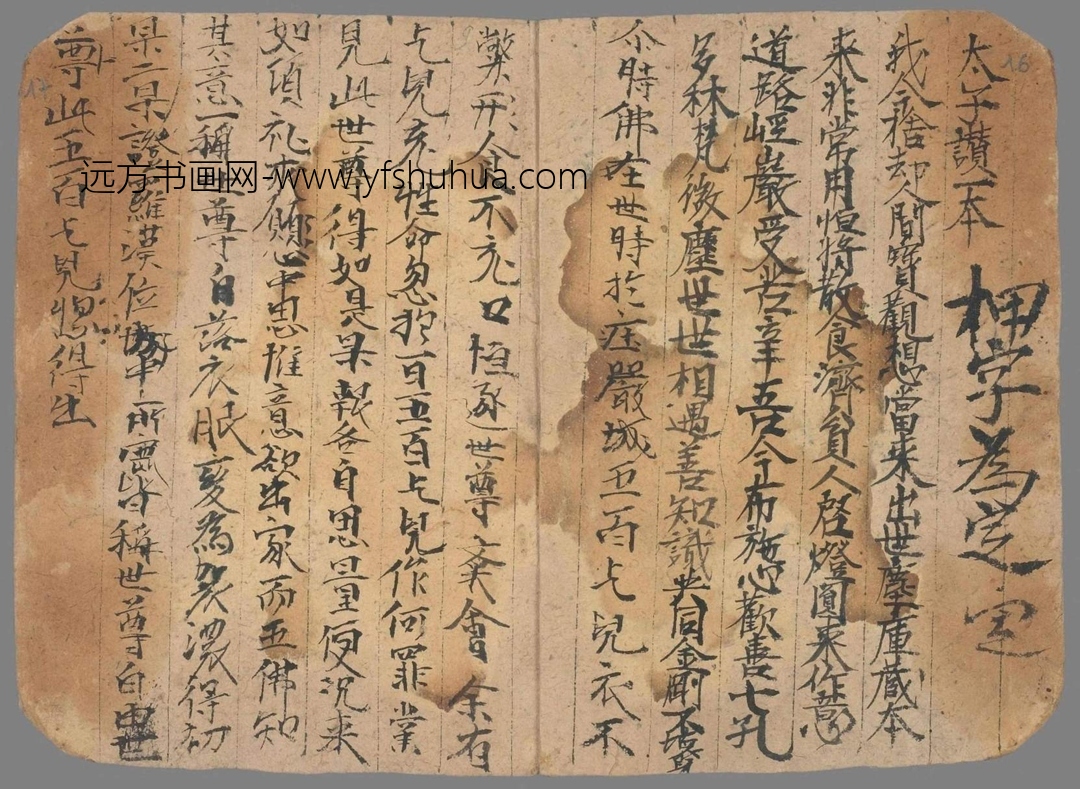 太子讃一本 押字為定
我今捨却人間寶觀想當来出世塵庫藏本
来非常用恒将散食濟貧人啓燈圓来作悲心
道路崄巖受苦辛吾今布施心歡善七孔
多林梵後塵世世相遇善知識共同金剛不壞身
尒時佛在世時扵庄嚴城五百乞兒衣不
弊形食不充口恒逐世尊 會 余有
乞兒充性命忽扵一日五百乞兒作何罪業
見此世尊得如是果報各自思量便况来
如頂礼才願心中思惟意欲出家而五佛知
其意一稱世尊自落衣眼变為袈 得初
果二果證羅漢位 中所 皆稱世尊自
尊此五百乞兒惣得生
16
17
远方书画网-www.yfshuhua.com